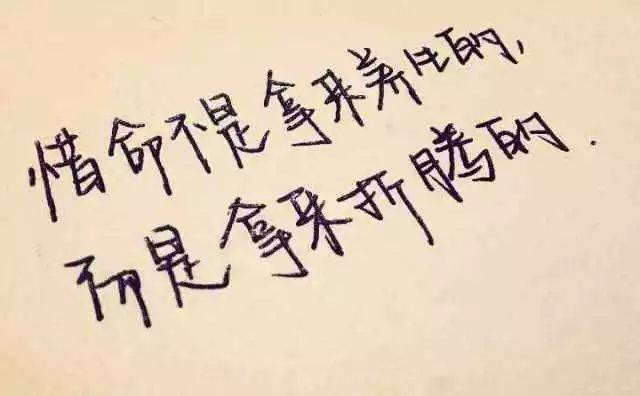 惜命不是拿来养生的,
而是拿来折腾的.